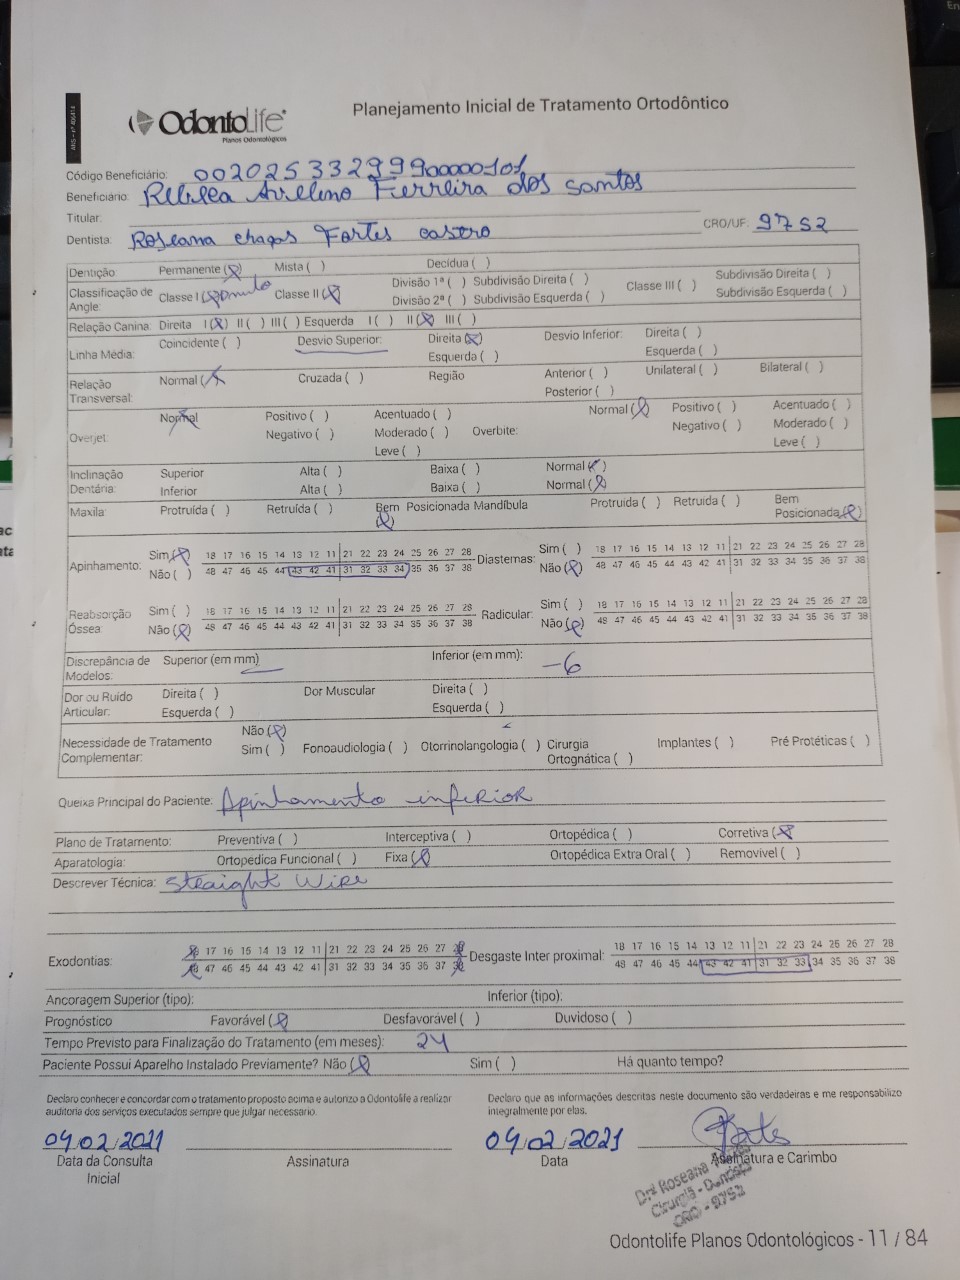 ANS - nº 406414
OdontoLife
Planos Odontológicos
Planejamento Inicial de Tratamento Ortodôntico
Código Beneficiário: 00202533299900000101
Beneficiário: Avelino Ferreira dos santos
Titular:
Dentista: Roseana chagas Fortes castro CRO/UF: 9752
Dentição Permanente (X) Mista ( ) Decídua ( )
Classificação de Angle: Classe I (X) Classe II (X) Divisão 1ª ( ) Subdivisão Direita ( ) Classe III ( ) Subdivisão Direita ( )
Divisão 2ª ( ) Subdivisão Esquerda ( ) Subdivisão Esquerda ( )
Relação Canina: Direita I (X) II ( ) III ( ) Esquerda I ( ) II (X) III ( )
Linha Média: Coincidente ( ) Desvio Superior: Direita (X) Desvio Inferior: Direita ( )
Esquerda ( ) Esquerda ( )
Relação Transversal: Normal (X) Cruzada ( ) Região Anterior ( ) Unilateral ( ) Bilateral ( )
Posterior ( )
Overjet: Normal Positivo ( ) Acentuado ( ) Overbite: Normal (X) Positivo ( ) Acentuado ( )
Negativo ( ) Moderado ( ) Negativo ( ) Moderado ( )
Leve ( ) Leve ( )
Inclinação Dentária: Superior Alta ( ) Baixa ( ) Normal (X)
Inferior Alta ( ) Baixa ( ) Normal (X)
Maxila: Protruída ( ) Retruída ( ) Bem Posicionada (X) Mandíbula Protruída ( ) Retruida ( ) Bem Posicionada (X)
Apinhamento: Sim (X) 18 17 16 15 14 13 12 11 21 22 23 24 25 26 27 28 Diastemas: Sim ( ) 18 17 16 15 14 13 12 11 21 22 23 24 25 26 27 28
Não ( ) 48 47 46 45 44 43 42 41 31 32 33 34 35 36 37 38 Não (X) 48 47 46 45 44 43 42 41 31 32 33 34 35 36 37 38
Reabsorção Óssea: Sim ( ) 18 17 16 15 14 13 12 11 21 22 23 24 25 26 27 28 Radicular: Sim ( ) 18 17 16 15 14 13 12 11 21 22 23 24 25 26 27 28
Não (X) 48 47 46 45 44 43 42 41 31 32 33 34 35 36 37 38 Não (X) 48 47 46 45 44 43 42 41 31 32 33 34 35 36 37 38
Discrepância de Modelos: Superior (em mm) Inferior (em mm): -6
Dor ou Ruido Articular: Direita ( ) Dor Muscular Direita ( )
Esquerda ( ) Esquerda ( )
Necessidade de Tratamento Complementar: Não (X)
Sim ( ) Fonoaudiologia ( ) Otorrinolangologia ( ) Cirurgia Ortognática ( ) Implantes ( ) Pré Protéticas ( )
Queixa Principal do Paciente: Apinhamento inferior
Plano de Tratamento: Preventiva ( ) Interceptiva ( ) Ortopédica ( ) Corretiva (X)
Aparatologia: Ortopedica Funcional ( ) Fixa (X) Ortopédica Extra Oral ( ) Removivel ( )
Descrever Técnica: Straight Wire
Exodontias: 18 17 16 15 14 13 12 11 21 22 23 24 25 26 27 28 Desgaste Inter proximal: 18 17 16 15 14 13 12 11 21 22 23 24 25 26 27 28
48 47 46 45 44 43 42 41 31 32 33 34 35 36 37 38 48 47 46 45 44 43 42 41 31 32 33 34 35 36 37 38
Ancoragem Superior (tipo): Inferior (tipo):
Prognóstico Favorável (X) Desfavorável ( ) Duvidoso ( )
Tempo Previsto para Finalização do Tratamento (em meses): 24
Paciente Possui Aparelho Instalado Previamente? Não (X) Sim ( ) Há quanto tempo?
Declaro conhecer e concordar com o tratamento proposto acima e autorizo a Odontolife a realizar auditoria dos serviços executados sempre que julgar necessário.
Declaro que as informações descritas neste documento são verdadeiras e me responsabilizo integralmente por elas.
04/02/2021 04/02/2021
Data da Consulta Inicial Assinatura Data Assinatura e Carimbo
Drª Roseana
Cirurgiã - Dentista
CRO - 9752
Odontolife Planos Odontológicos - 11 / 84